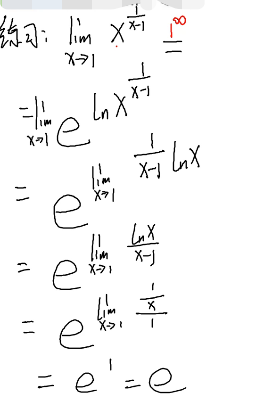 练习: lim_{x→1} x^{\frac{1}{x-1}} \overset{1^∞}{=}
= lim_{x→1} e^{ln x^{\frac{1}{x-1}}}
= e^{lim_{x→1} \frac{1}{x-1} ln x}
= e^{lim_{x→1} \frac{ln x}{x-1}}
= e^{lim_{x→1} \frac{\frac{1}{x}}{1}}
= e^1 = e